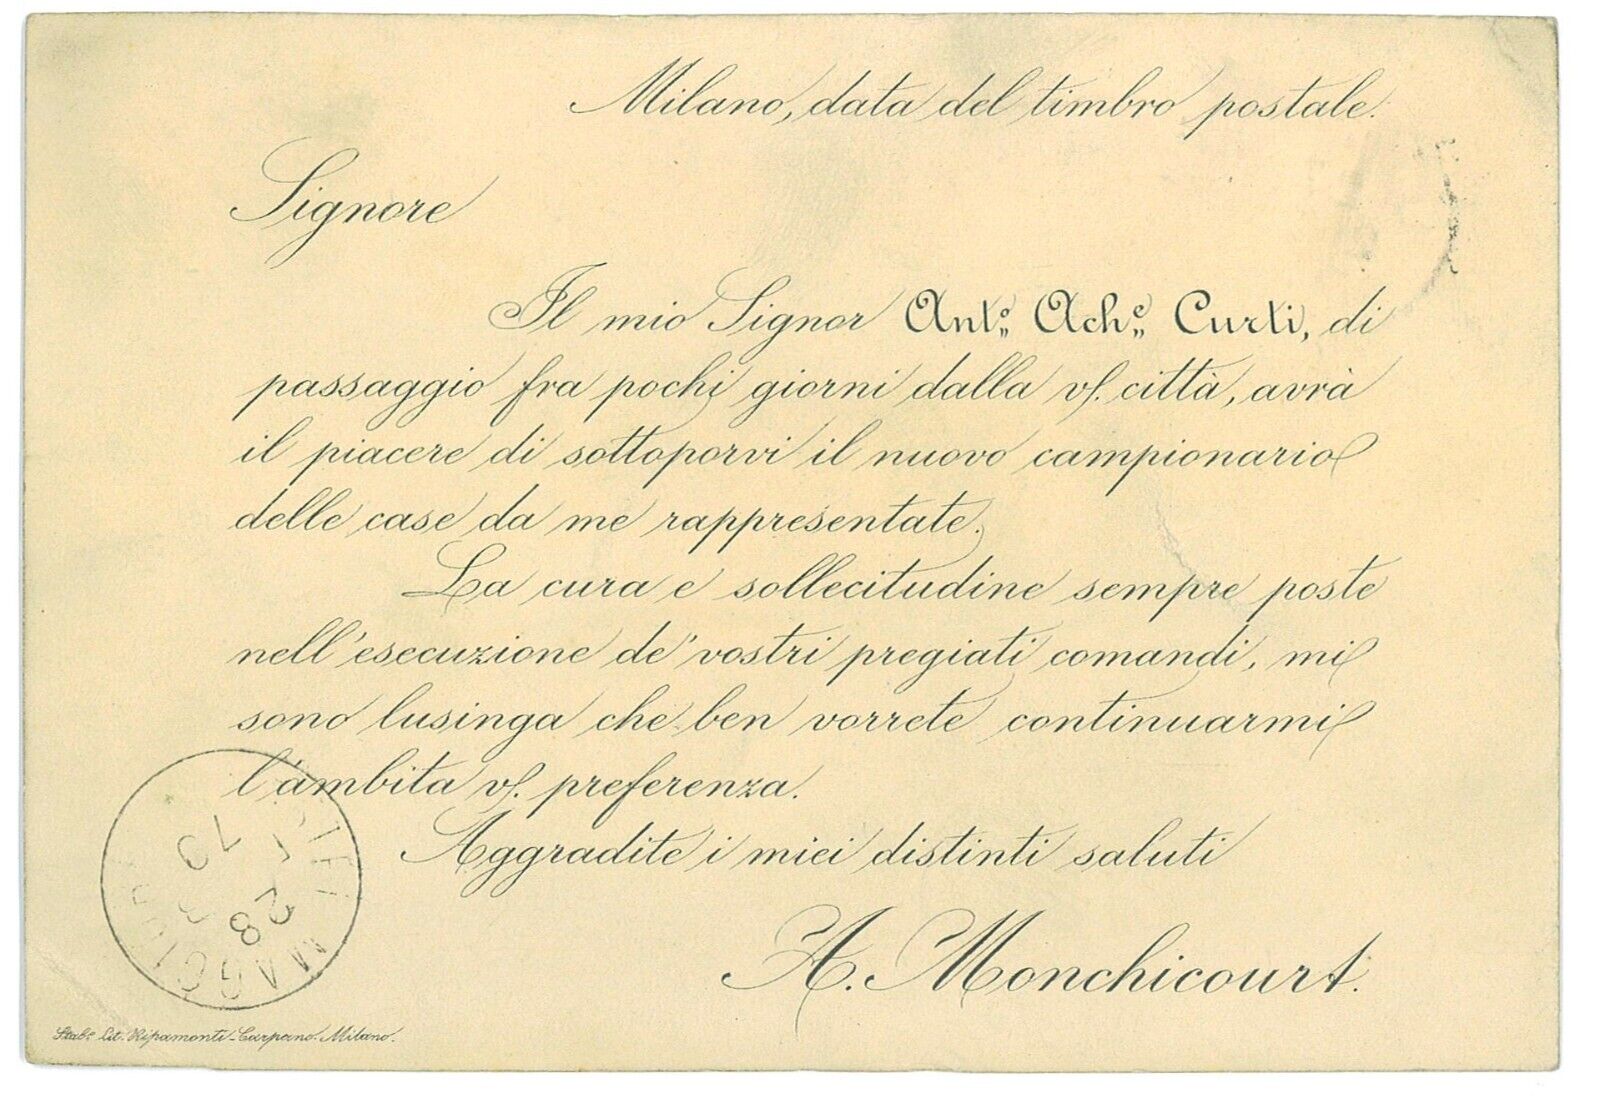 Milano, data del timbro postale.
Signore
Il mio Signor Ant.º Ach.º Curti, di
passaggio fra pochi giorni dalla vs. città, avrà
il piacere di sottoporvi il nuovo campionario
delle case da me rappresentate.
La cura e sollecitudine sempre poste
nell'esecuzione de' vostri pregiati comandi, mi
sono lusinga che ben vorrete continuarmi
l'ambita vs. preferenza.
Aggradite i miei distinti saluti
A. Monchicourt.
Stab.º Lit. Ripamonti-Carpano. Milano.
28